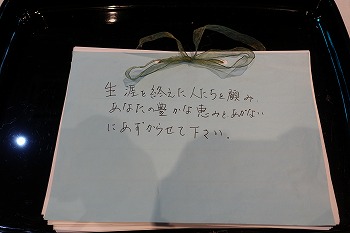 生涯を終えた人たちを顧み、
あなたの豊かな恵みとあがない
にあずからせて下さい。